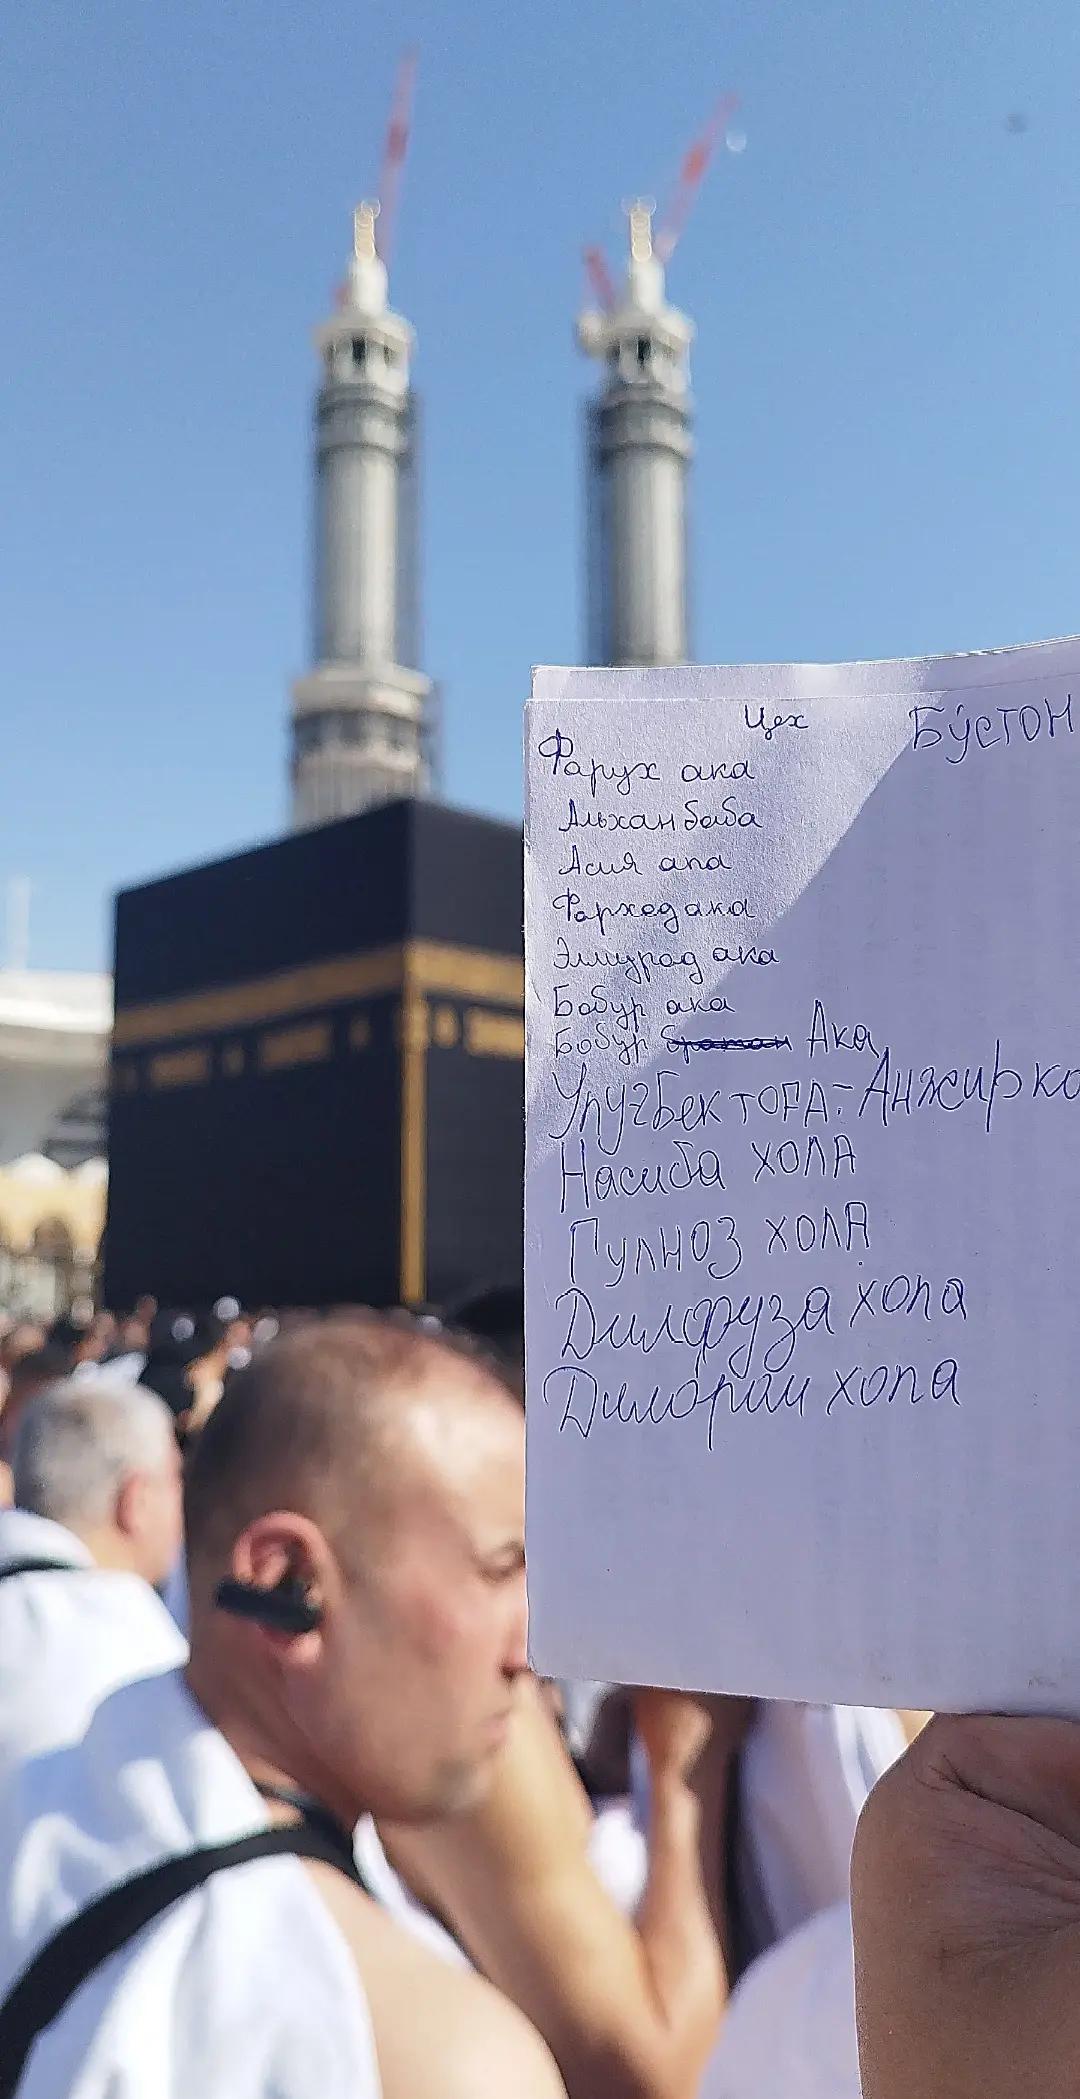 Цех Бўстон
Фарух ака
Альхан баба
Асия апа
Фархед ака
Элмурод ака
Бобур ака
Бобур братан Ака
Улугбек тоға:- Анжирко
Насиба хола
Гулноз хола
Дилфуза хола
Дилором хола